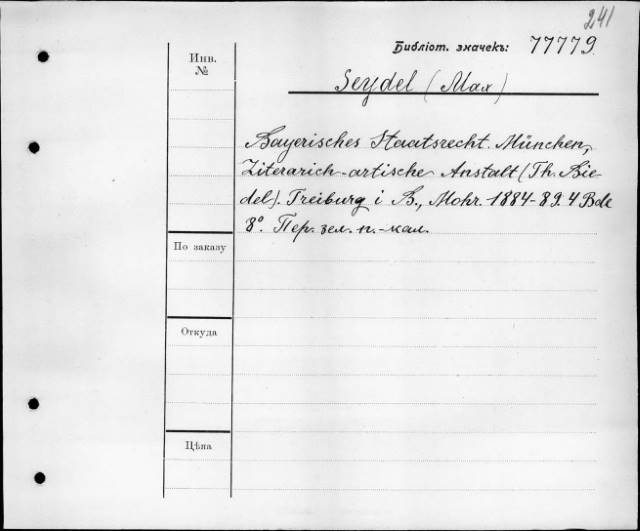 241
Библіот. значекъ: 77779
Инв. №
Seydel (Max)
Bayerisches Staatsrecht. München,
Literarich-artische Anstalt (Th. Rie-
del). Freiburg i B., Mohr. 1884-89. 4 Bde
8°. Пер. зел. п.-кал.
По заказу
Откуда
Цѣна